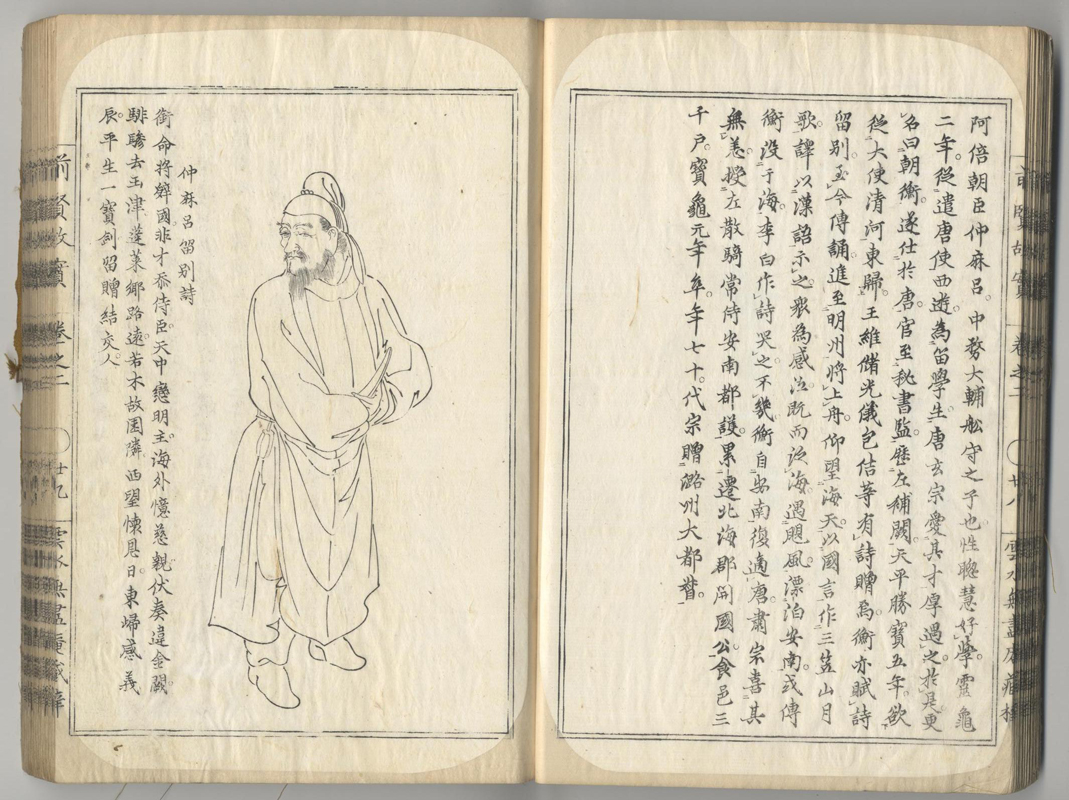 阿倍朝臣仲麻呂。中務大輔舩守之子也。性聰慧好學。靈龜
二年。從遣唐使西遊。為留學生。唐玄宗愛其才厚遇之。於是更
名曰朝衡。遂仕於唐。官至秘書監。歷左補闕。天平勝寶五年。欲
從大使清河東歸。王維儲光儀包佶等有詩贈焉。衡亦賦詩
留別。至今傳誦。進至明州將上舟。仰望海天。以國言作三笠山月
歌。譯以漢語示之。衆為感泣。既而泛海。遇颶風。漂泊安南。或傳
衡没于海。李白作詩哭之。不幾衡自安南復適唐。肅宗喜其
無恙。授左散騎常侍安南都護。累遷北海郡開國公。食邑三
千戸。寶龜元年卒。年七十。代宗贈潞州大都督。
仲麻呂留別詩
銜命將辭國。非才忝侍臣。天中戀明主。海外憶慈親。伏奏違金闕。
騑驂去玉津。蓬萊鄉路遠。若木故園隣。西望懷恩日。東歸感義
辰。平生一寶劍。留贈結交人。
前賢故實 卷之二 廿九 雲水無盡庵藏梓
前賢故實 卷之二 廿八 雲水無盡庵藏梓